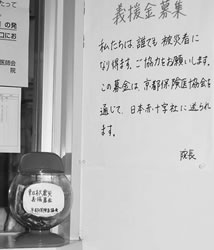 義援金募集
私たちは、誰でも被災者に
なり得ます。ご協力をお願いします。
この募金は、京都保険医協会を
通じて、日本赤十字社に送られ
ます。
院長
たって
の発
口にお
医師会
院
東日本大震災
義援募金
京都府保険医協会